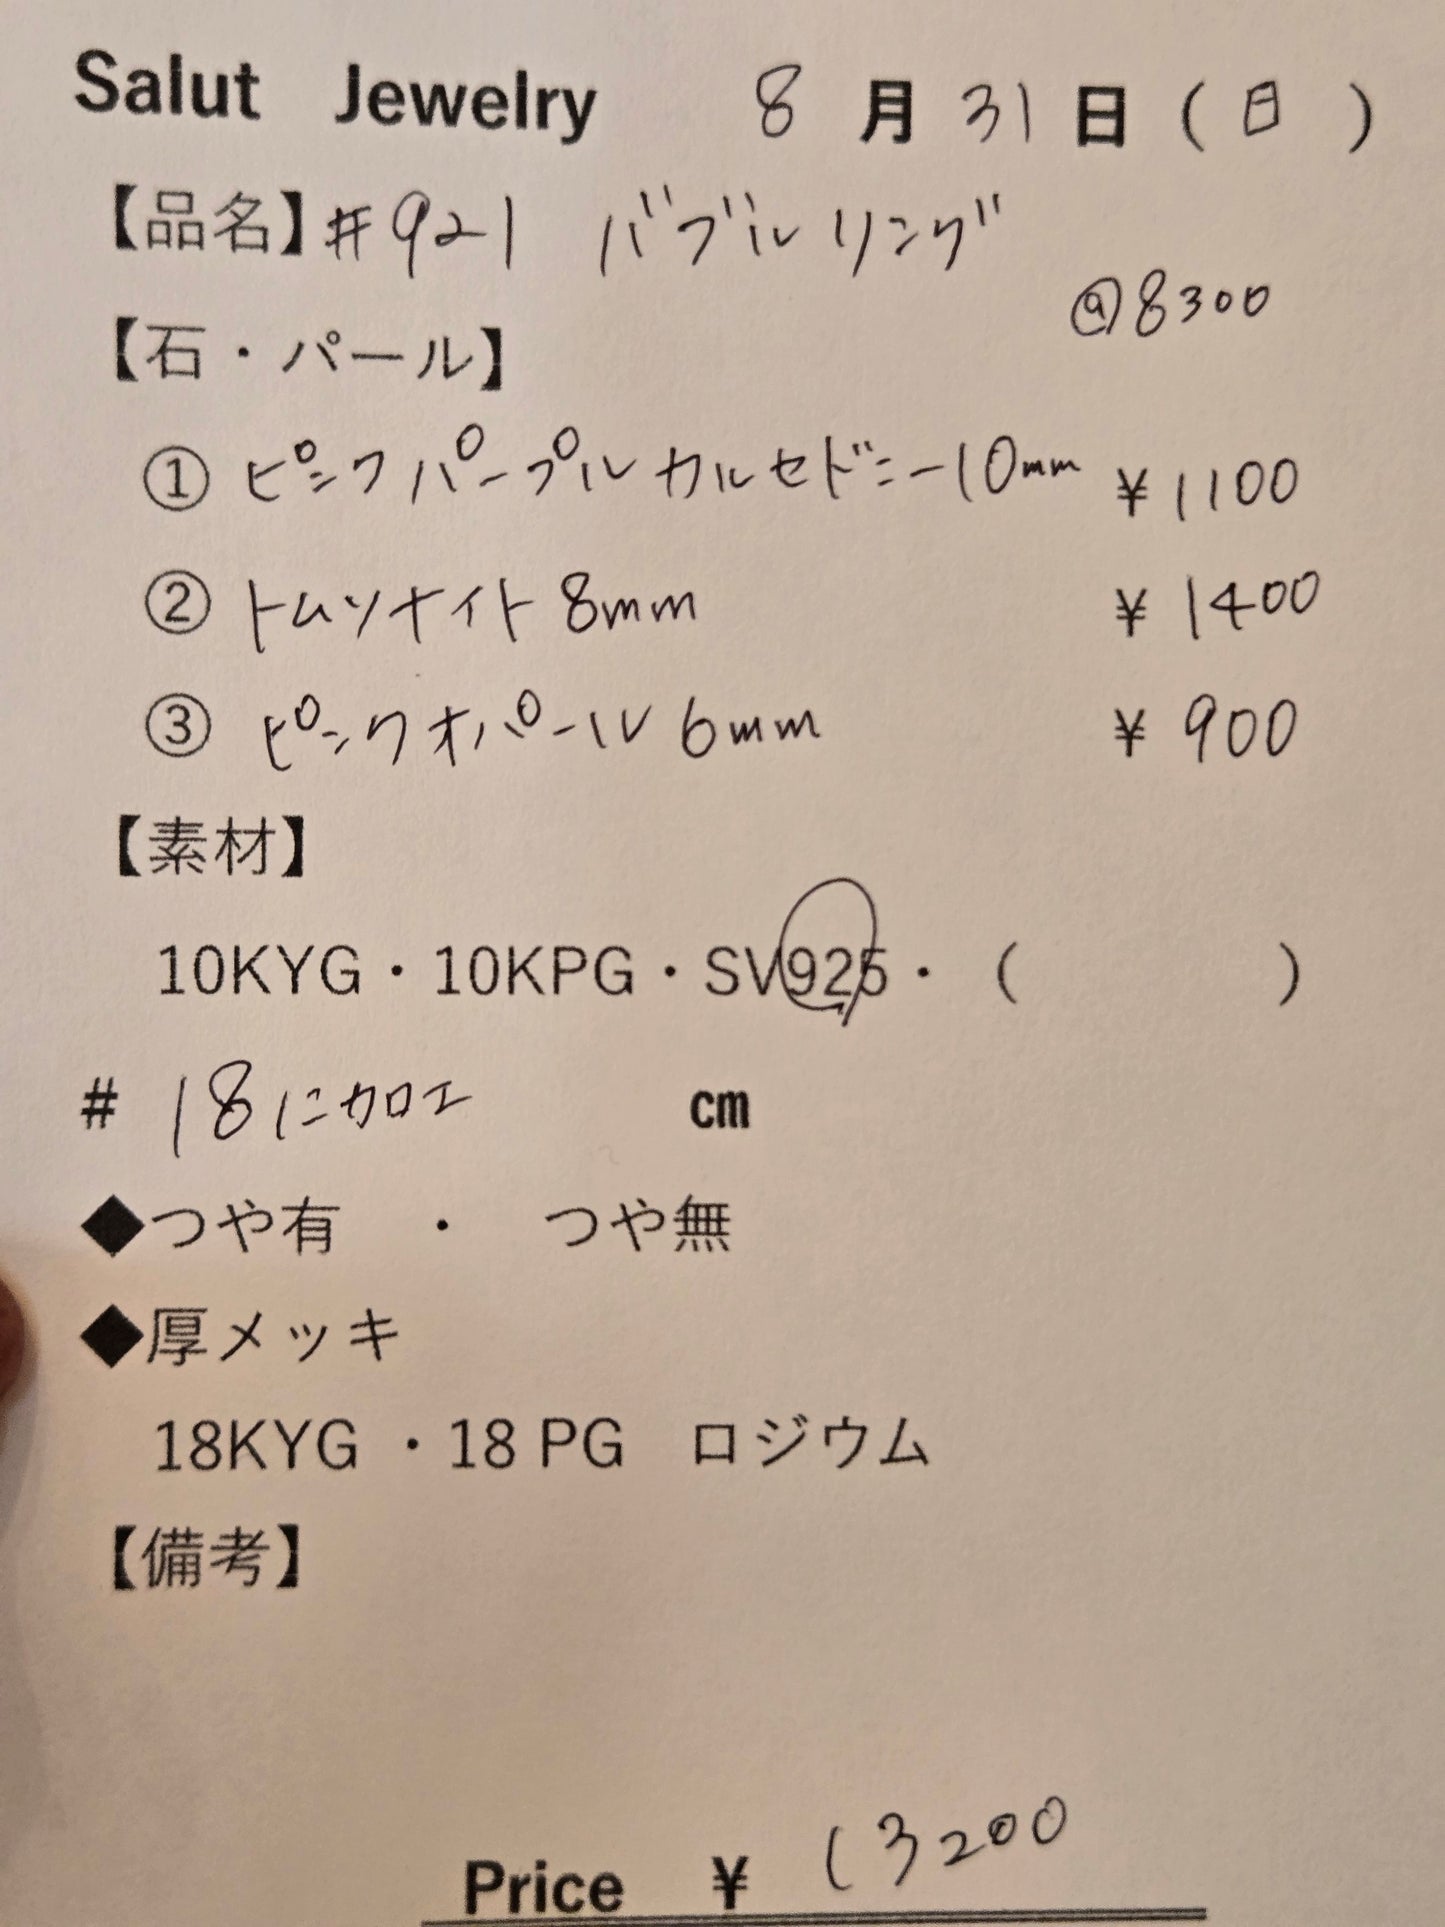 Salut Jewelry 8月31日(日)
【品名】#921 バブルリング
@8300
【石・パール】
① ピンクパープルカルセドニー10mm ¥1100
② トムソナイト8mm ¥1400
③ ピンクオパール6mm ¥900
【素材】
10KYG・10KPG・SV925・( )
# 18に加工 cm
◆つや有 ・ つや無
◆厚メッキ
18KYG ・18 PG ロジウム
【備考】
Price ¥ 13200